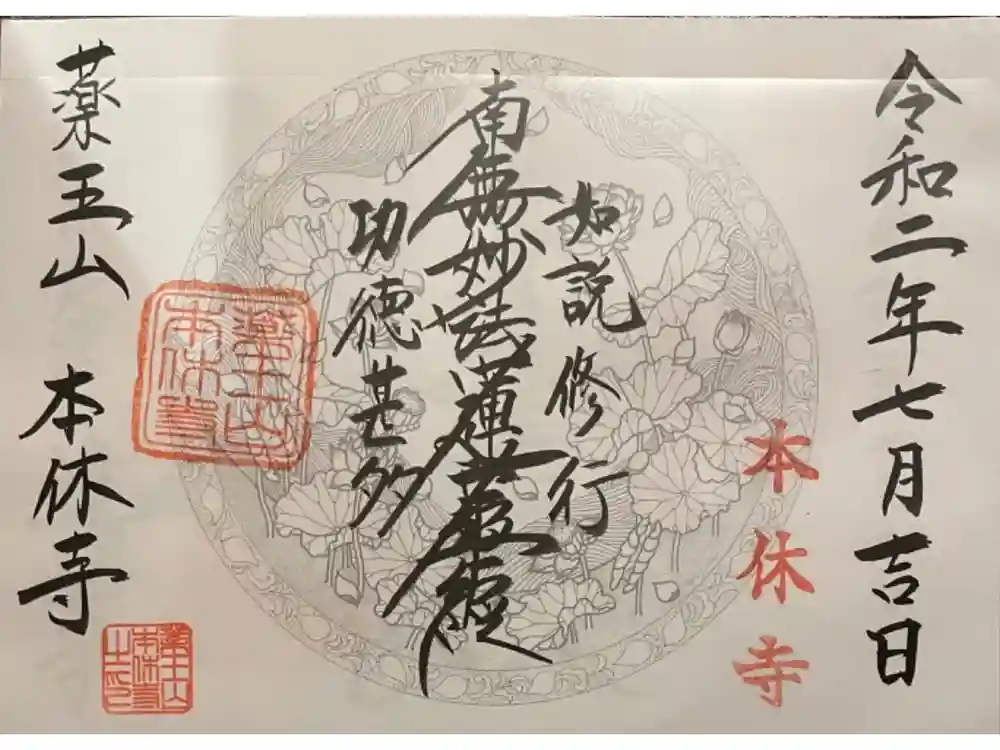 令和二年七月吉日
本休寺
如説修行
南無妙法蓮華経
功德甚多
薬王山 本休寺
薬王山
本休寺